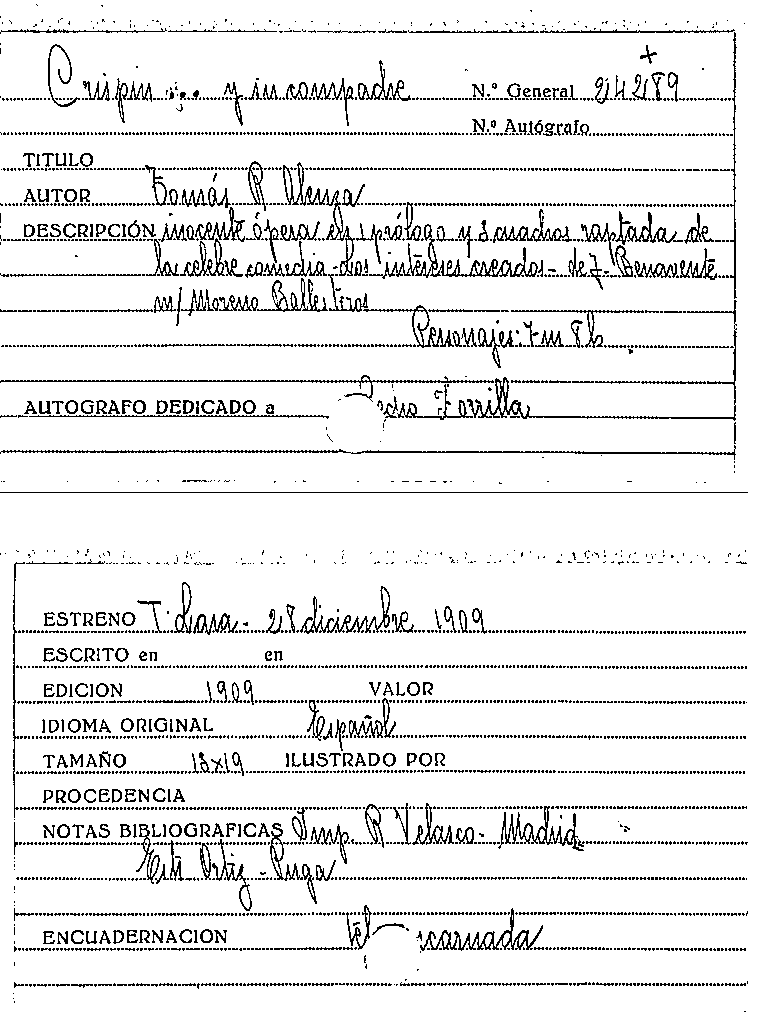 Crispin ... y su compadre
N.º General 24289
N.º Autógrafo
TITULO
AUTOR Tomás R Alenza
DESCRIPCIÓN inocente ópera en 1 prólogo y 3 cuadros raptada de
la celebre comedia -Los intereses creados- de J- Benavente
m/ Moreno Ballesteros
Personajes: 7 m 8 h
AUTOGRAFO DEDICADO a Pedro Zorrilla
ESTRENO T. Lara - 28 diciembre 1909
ESCRITO en en
EDICION 1909 VALOR
IDIOMA ORIGINAL Español
TAMAÑO 13x19 ILUSTRADO POR
PROCEDENCIA
NOTAS BIBLIOGRAFICAS Imp R Velasco - Madrid
Ortiz - Puga
ENCUADERNACION encarnada